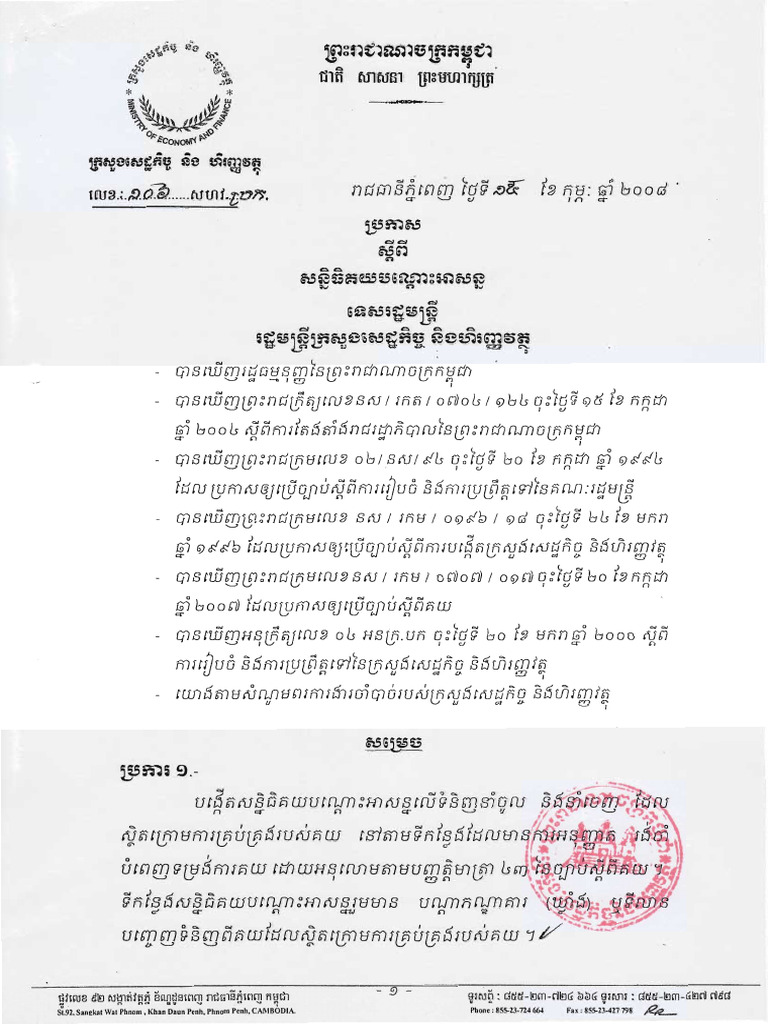 ព្រះរាជាណាចក្រកម្ពុជា
ជាតិ សាសនា ព្រះមហាក្សត្រ
ក្រសួងសេដ្ឋកិច្ច និង ហិរញ្ញវត្ថុ
MINISTRY OF ECONOMY AND FINANCE
ក្រសួងសេដ្ឋកិច្ច និង ហិរញ្ញវត្ថុ
លេខ:.១០៦......សហវ.ប្រក.
រាជធានីភ្នំពេញ ថ្ងៃទី ១៥ ខែ កុម្ភៈ ឆ្នាំ ២០០៨
ប្រកាស
ស្តីពី
សន្និធិគយបណ្តោះអាសន្ន
ទេសរដ្ឋមន្ត្រី
រដ្ឋមន្ត្រីក្រសួងសេដ្ឋកិច្ច និងហិរញ្ញវត្ថុ
- បានឃើញរដ្ឋធម្មនុញ្ញនៃព្រះរាជាណាចក្រកម្ពុជា
- បានឃើញព្រះរាជក្រឹត្យលេខនស / រកត / ០៧០៤ / ១២៤ ចុះថ្ងៃទី ១៥ ខែ កក្កដា
ឆ្នាំ ២០០៤ ស្តីពីការតែងតាំងរាជរដ្ឋាភិបាលនៃព្រះរាជាណាចក្រកម្ពុជា
- បានឃើញព្រះរាជក្រមលេខ ០២/ នស/ ៩៤ ចុះថ្ងៃទី ២០ ខែ កក្កដា ឆ្នាំ ១៩៩៤
ដែល ប្រកាសឲ្យប្រើច្បាប់ស្តីពីការរៀបចំ និងការប្រព្រឹត្តទៅនៃគណៈរដ្ឋមន្ត្រី
- បានឃើញព្រះរាជក្រមលេខ នស / រកម / ០១៩៦ / ១៨ ចុះថ្ងៃទី ២៤ ខែ មករា
ឆ្នាំ ១៩៩៦ ដែលប្រកាសឲ្យប្រើច្បាប់ស្តីពីការបង្កើតក្រសួងសេដ្ឋកិច្ច និងហិរញ្ញវត្ថុ
- បានឃើញព្រះរាជក្រមលេខនស / រកម / ០៧០៧ / ០១៧ ចុះថ្ងៃទី ២០ ខែកក្កដា
ឆ្នាំ ២០០៧ ដែលប្រកាសឲ្យប្រើច្បាប់ស្តីពីគយ
- បានឃើញអនុក្រឹត្យលេខ ០៤ អនក្រ.បក ចុះថ្ងៃទី ២០ ខែ មករា ឆ្នាំ ២០០០ ស្តីពី
ការរៀបចំ និងការប្រព្រឹត្តទៅនៃក្រសួងសេដ្ឋកិច្ច និងហិរញ្ញវត្ថុ
- យោងតាមសំណូមពរការងារចាំបាច់របស់ក្រសួងសេដ្ឋកិច្ច និងហិរញ្ញវត្ថុ
សម្រេច
ប្រការ ១.-
បង្កើតសន្និធិគយបណ្តោះអាសន្នលើទំនិញនាំចូល និងនាំចេញ ដែល
ស្ថិតក្រោមការគ្រប់គ្រងរបស់គយ នៅតាមទីកន្លែងដែលមានការអនុញ្ញាត រង់ចាំ
បំពេញទម្រង់ការគយ ដោយអនុលោមតាមបញ្ញត្តិមាត្រា ៤៣ នៃច្បាប់ស្តីពីគយ ។
ទីកន្លែងសន្និធិគយបណ្តោះអាសន្នរួមមាន បណ្តាភណ្ឌាគារ (ឃ្លាំង) ឬទីលាន
បញ្ចេញទំនិញពីគយដែលស្ថិតក្រោមការគ្រប់គ្រងរបស់គយ ។
- ១ -
ផ្លូវលេខ ៩២ សង្កាត់វត្តភ្នំ ខ័ណ្ឌដូនពេញ រាជធានីភ្នំពេញ កម្ពុជា
ទូរស័ព្ទ : ៨៥៥-២៣-៧២៤ ៦៦៤ ទូរសារ : ៨៥៥-២៣-៤២៧ ៧៩៨
St.92. Sangkat Wat Phnom , Khan Daun Penh, Phnom Penh, CAMBODIA.
Phone : 855-23-724 664 Fax : 855-23-427 798